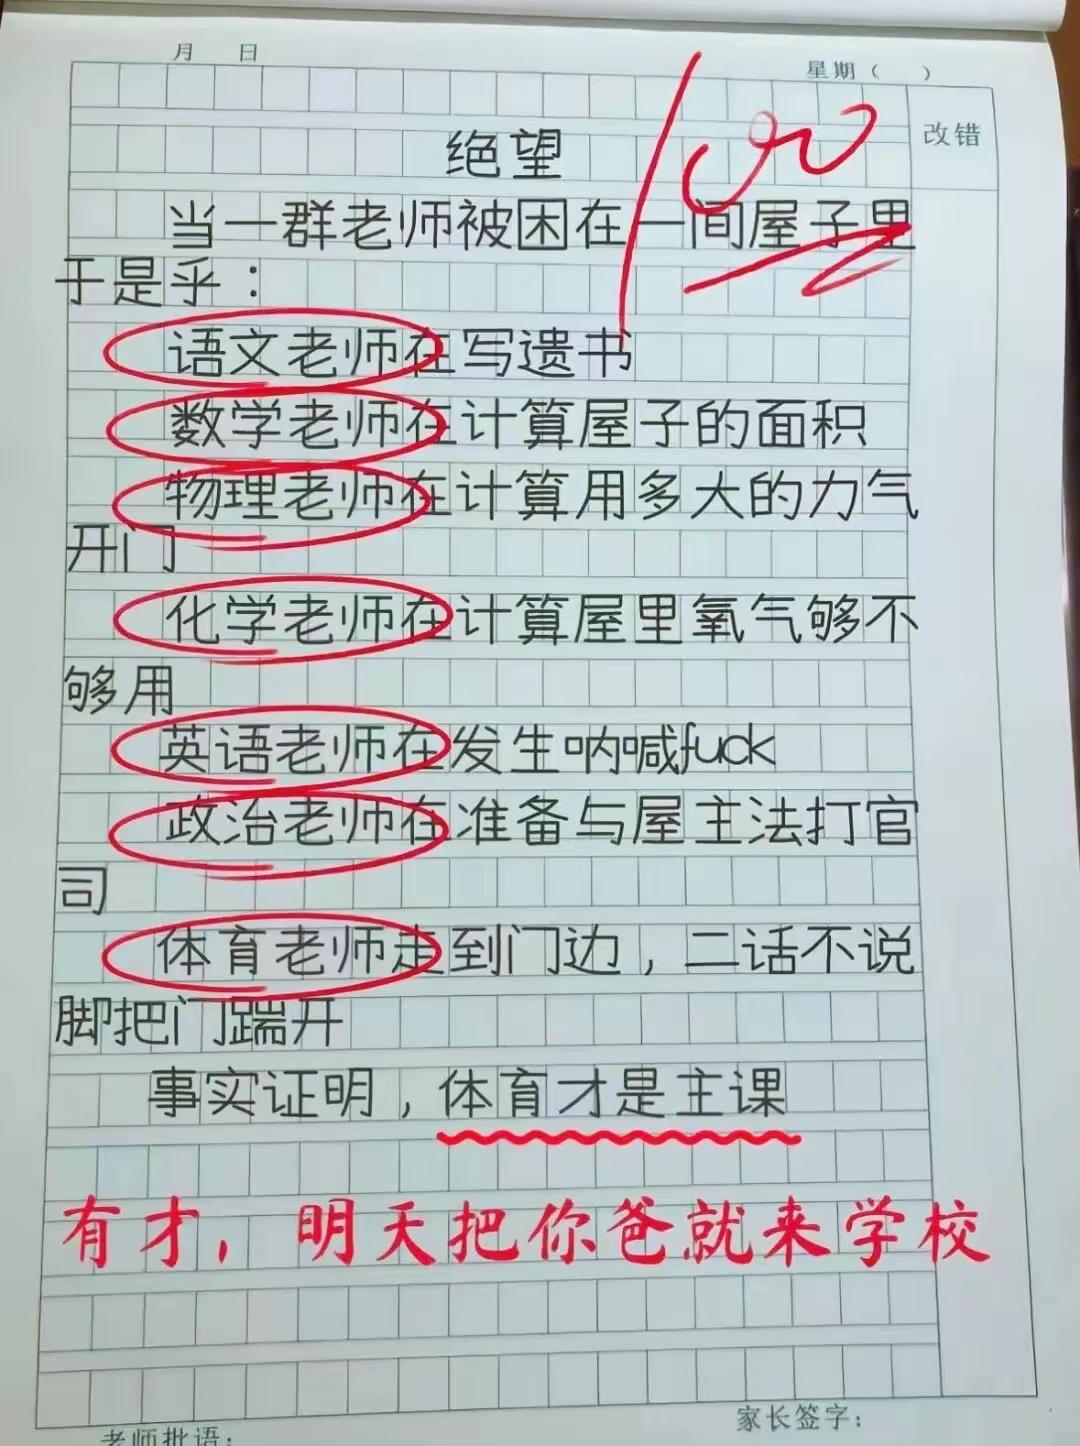 月 日 星期（ ）
改错
100
绝望
当一群老师被困在一间屋子里
于是乎：
语文老师在写遗书
数学老师在计算屋子的面积
物理老师在计算用多大的力气
开门
化学老师在计算屋里氧气够不
够用
英语老师在发生呐喊fuck
政治老师在准备与屋主法打官
司
体育老师走到门边，二话不说
脚把门踹开
事实证明，体育才是主课
有才，明天把你爸就来学校
老师批语：
家长签字：